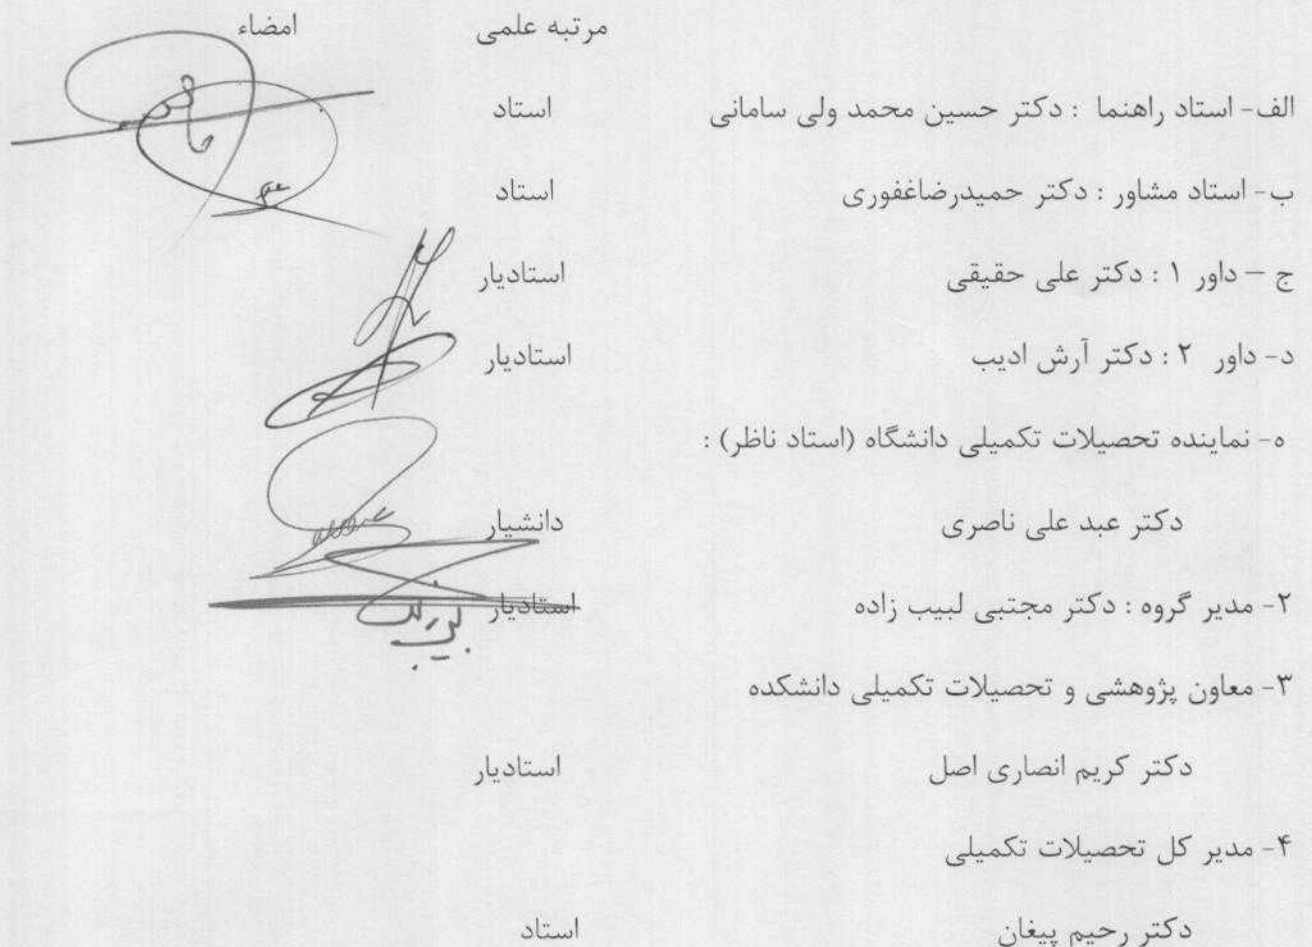 مرتبه علمی امضاء
الف- استاد راهنما : دکتر حسین محمد ولی سامانی استاد
ب- استاد مشاور : دکتر حمیدرضاغفوری استاد
ج – داور ۱ : دکتر علی حقیقی استادیار
د- داور ۲ : دکتر آرش ادیب استادیار
ه- نماینده تحصیلات تکمیلی دانشگاه (استاد ناظر) :
دکتر عبد علی ناصری دانشیار
۲- مدیر گروه : دکتر مجتبی لبیب زاده استادیار
۳- معاون پژوهشی و تحصیلات تکمیلی دانشکده
دکتر کریم انصاری اصل استادیار
۴- مدیر کل تحصیلات تکمیلی
دکتر رحیم پیغان استاد